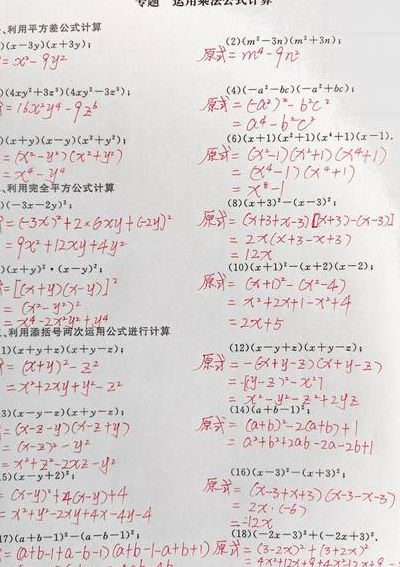 专题 运用乘法公式计算
、利用平方差公式计算
)(x−3y)(x+3y);
= x²−9y²
(2)(m²−3n)(m²+3n);
原式= m⁴−9n²
)(4xy²+3z³)(4xy²−3z³);
= 16x²y⁴−9z⁶
(4)(−a²−bc)(−a²+bc);
原式= (−a²)²−b²c²
= a⁴−b²c²
)(x+y)(x−y)(x²+y²);
= (x²−y²)(x²+y²)
= x⁴−y⁴
(6)(x+1)(x²+1)(x⁴+1)(x−1).
原式= (x²−1)(x²+1)(x⁴+1)
= (x⁴−1)(x⁴+1)
= x⁸−1
、利用完全平方公式计算
)(−3x−2y)²;
= (−3x)²+2×6xy+(−2y)²
= 9x²+12xy+4y²
(8)(x+3)²−(x−3)²;
原式= (x+3+x−3)[(x+3)−(x−3)]
= 2x(x+3−x+3)
= 12x
)(x+y)²·(x−y)²;
= [(x+y)(x−y)]²
= (x²−y²)²
= x⁴−2x²y²+y⁴
(10)(x+1)²−(x+2)(x−2);
原式= (x+1)²−(x²−4)
= x²+2x+1−x²+4
= 2x+5
、利用添括号两次运用公式进行计算
1)(x+y+z)(x+y−z);
= (x+y)²−z²
= x²+2xy+y²−z²
(12)(x−y+z)(x+y−z);
原式= −(x+y−z)(x+y−z)
= −[(y−z)²−x²]
= x²−y²−z²+2yz
3)(x−y−z)(x+y−z);
= (x−z−y)(x−z+y)
= (x−z)²−y²
= x²+z²−2xz−y²
(14)(a+b−1)²;
原式= (a+b)²−2(a+b)+1
= a²+b²+2ab−2a−2b+1
5)(x−y+2)²;
= (x−y)²+4(x−y)+4
= x²+y²−2xy+4x−4y−4
(16)(x−3)²−(x+3)²;
原式= (x−3+x+3)(x−3−x−3)
= 2x·(−6)
= −12x
17)(a+b−1)²−(a−b−1)²;
= (a+b−1+a−b−1)(a+b−1−a+b+1)
(18)(−2x−3)²+(−2x+3)².
原式= (3−2x)²+(3+2x)²